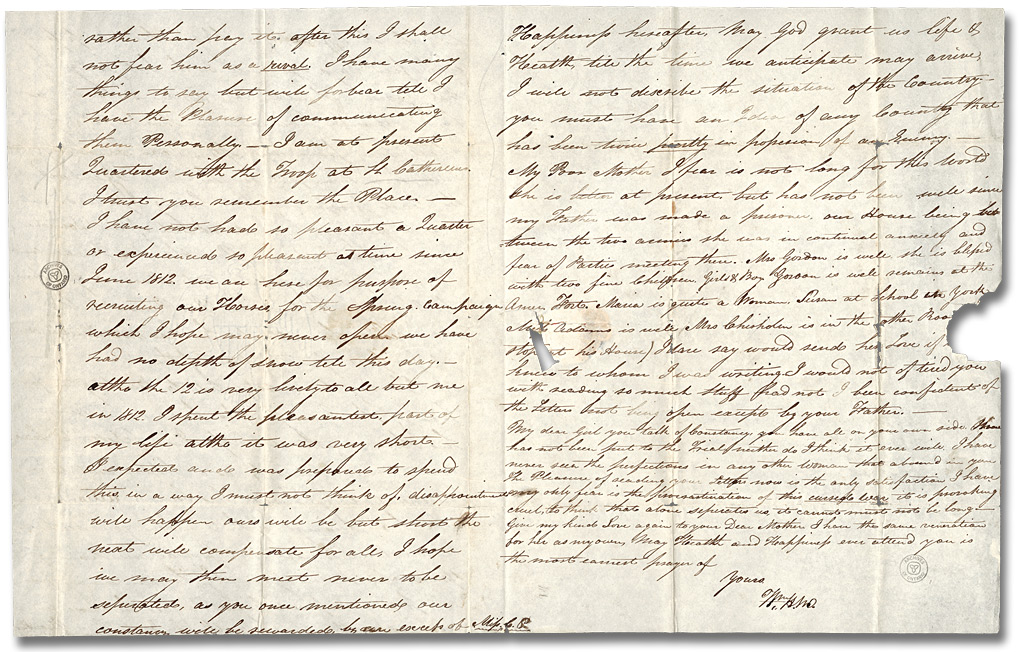 rather than pay it, after this I shall
not fear him as a rival. I have many
things to say but will forbear till I
have the Pleasure of communicating
them Personally. — I am at present
Quartered with the Troop at St Catherines
I trust you remember the Place. —
I have not had so pleasant a Quarter
or experienced so pleasant a time since
June 1812. we are here for purpose of
recruiting our Horses for the Spring Campaign
which I hope may never open we have
had no depth of snow till this day. —
altho the 12 is very lively to all but me
in 1812. I spent the pleasantest part of
my life altho it was very short —
I expected and was prepared to spend
this in a way I must not think of. disappointments
will happen ours will be but short the
next will compensate for all, I hope
we may then meet never to be
seperated, as you once mentioned our
constancy will be rewarded by an excess of
Happiness hereafter, May God grant us life &
Health till the time we anticipate may arrive,
I will not describe the situation of the Country —
you must have an Idea of any Country that
has been twice partly in possession of an Enemy. —
My Poor Mother I fear is not long for this World
She is better at present, but has not been well since
my Father was made a prisoner, our House being be
tween the two armies she was in continual anxiety and
fear of Parties meeting there. Mrs Gordon is well she is blessed
with two fine Children, Girl & Boy Gordon is well remains at the
Maria is quite a Woman Susan at School at York
Adams is well Mrs Chisholm is in the other Room
at his House) I dare say would send her Love if
knew to whom I was writing I would not of tired you
with reading so much stuff had not I been confident of
the Letters not being open except by your Father. —
My dear Girl you talk of constancy you have all on your own side.
has not been put to the Trial neither do I think it ever will. I have
never seen the perfections in any other Woman that abound in you
The Pleasure of reading your letters now is the only satisfaction I have
my only fear is the procrastination of this cursed war it is provoking
cruel, to think that alone seperates us, it cannot must not be long —
Give my kind Love again to your Dear Mother I have the same veneration
for her as my own, May Health and Happiness ever attend you is
the most earnest prayer of
Yours
Wm H M